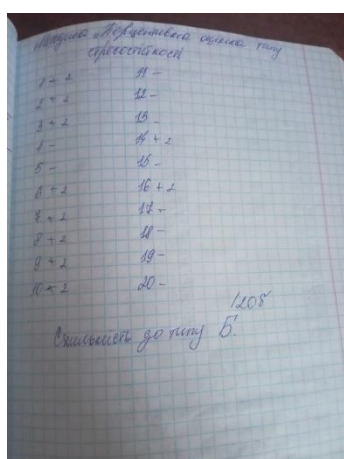 Методика „Перцептивна оцінка типу
стресостійкості
1 + 2
2 + 2
3 + 2
4 -
5 -
6 + 2
7 + 2
8 + 2
9 + 2
10 + 2
11 -
12 -
13 -
14 + 2
15 -
16 + 2
17 -
18 -
19 -
20 -
120б
Схильність до типу Б.